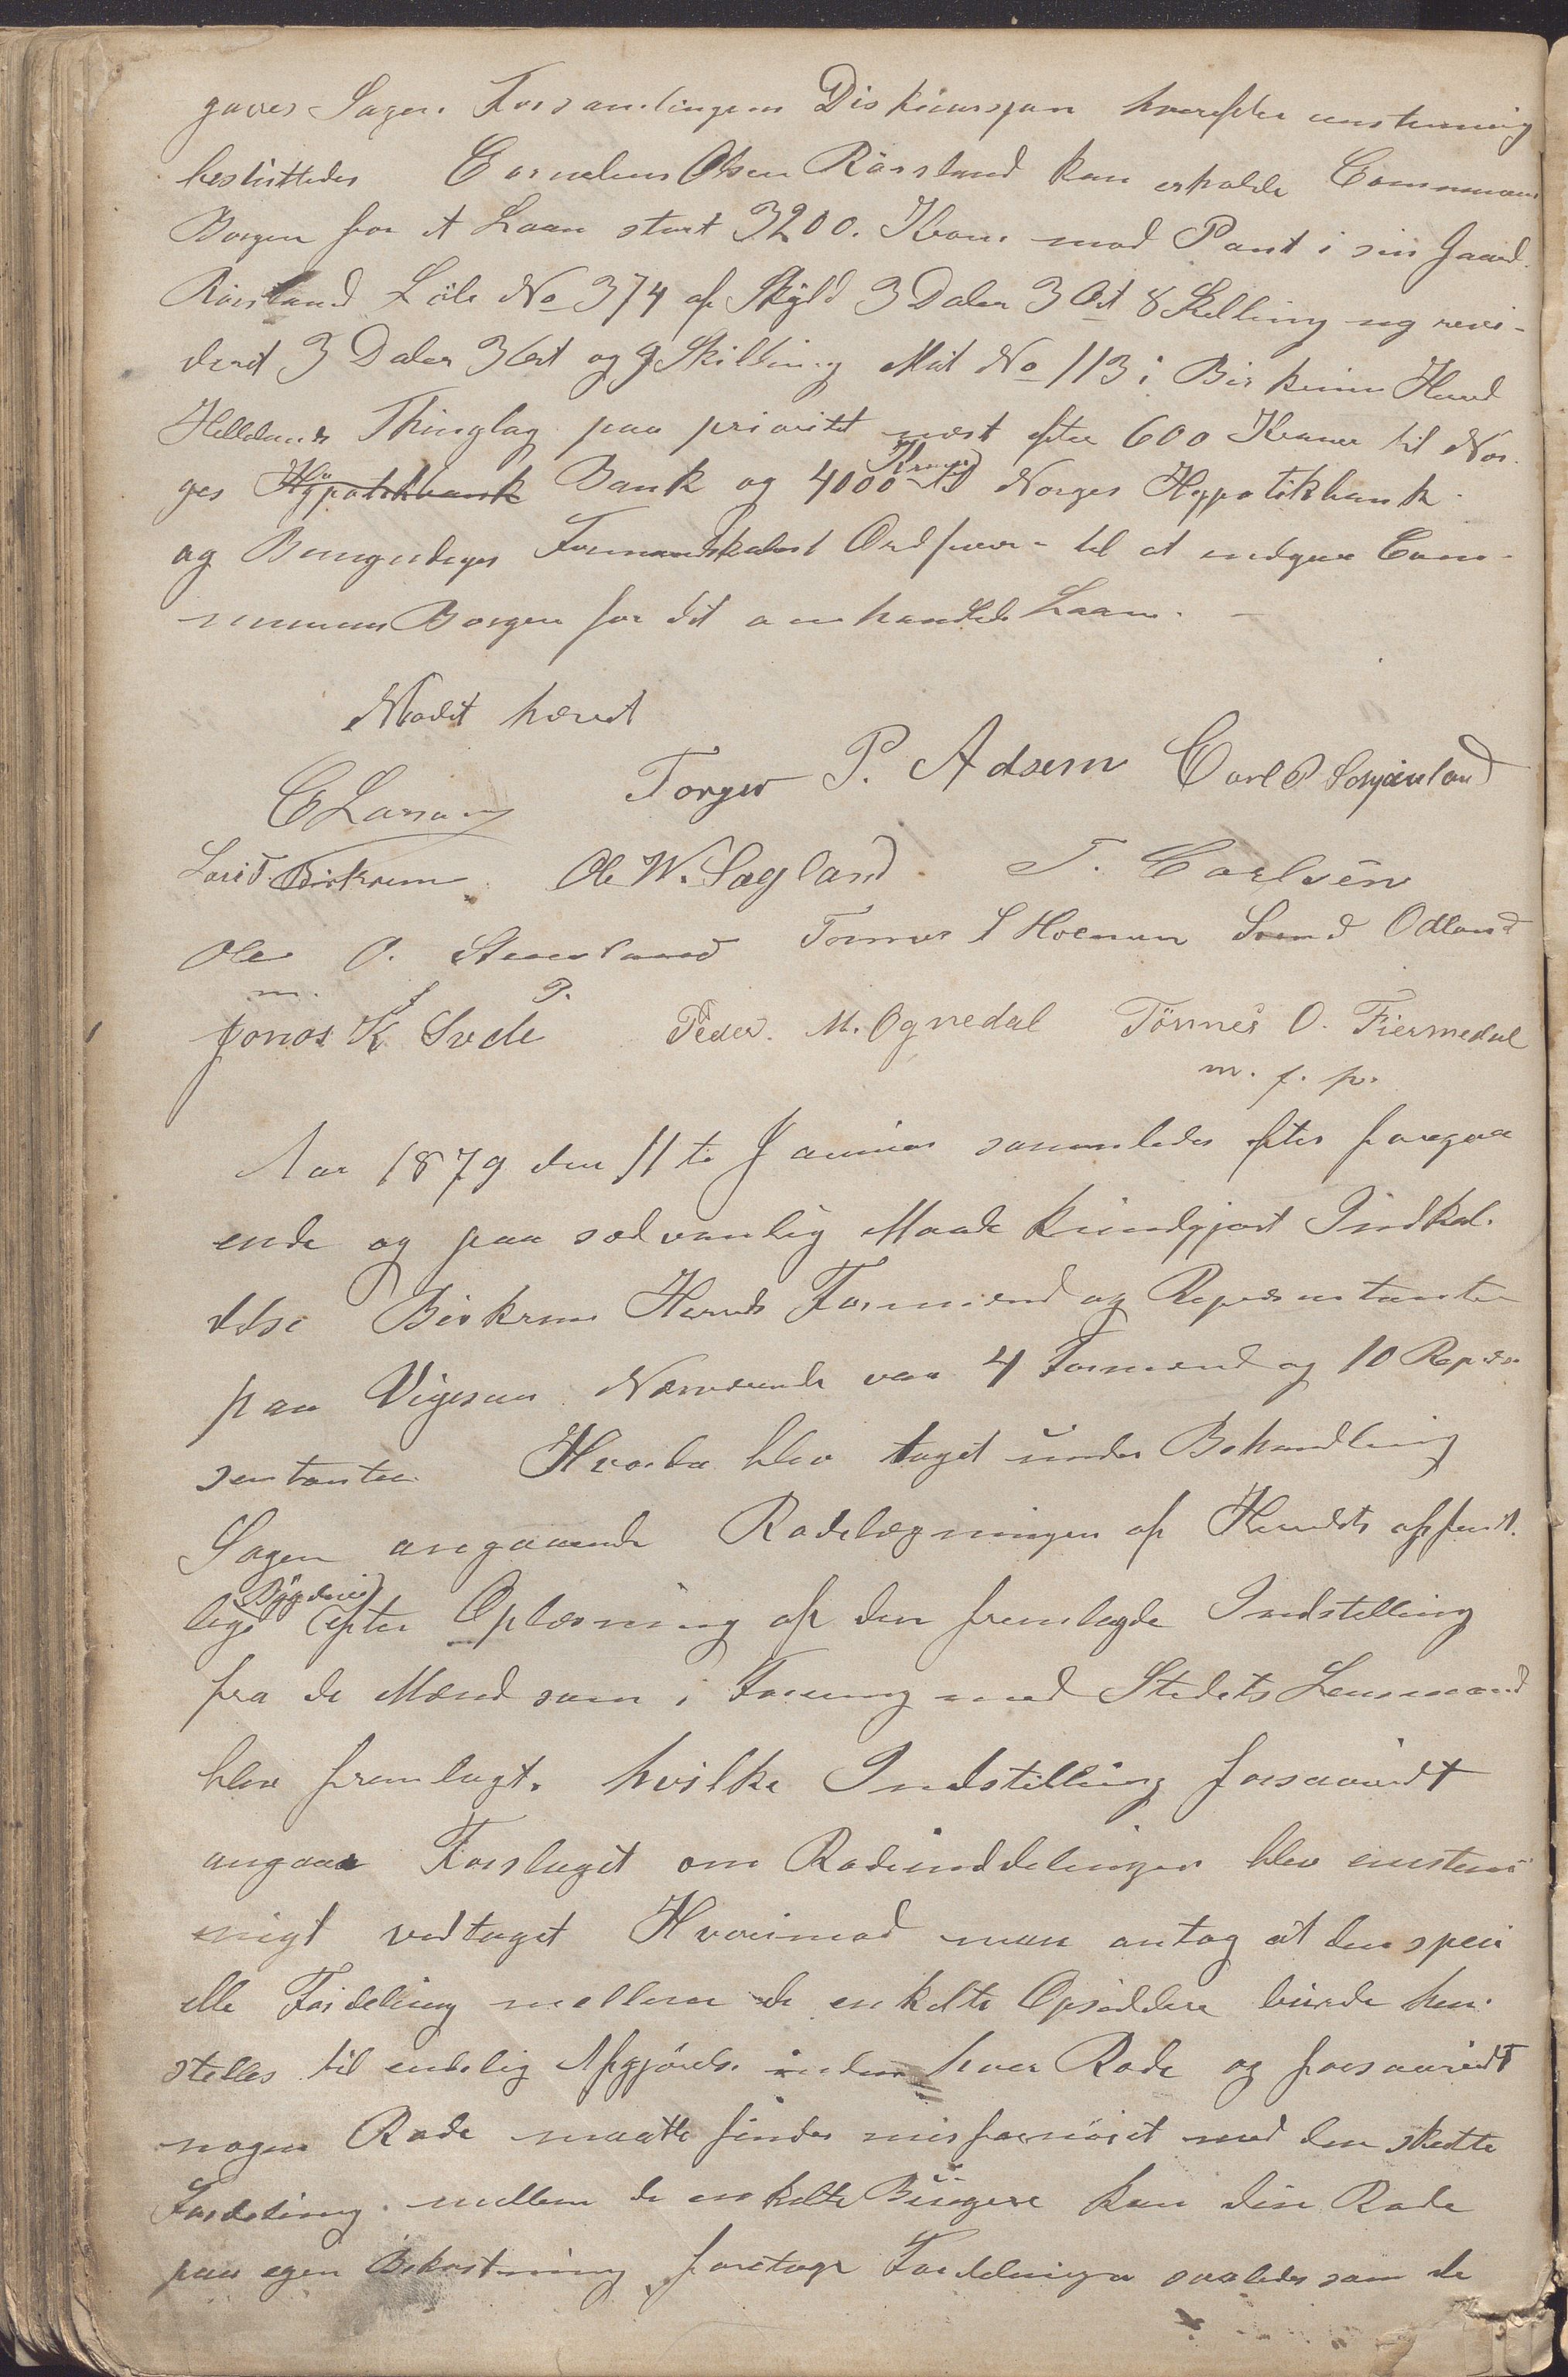 gaves Sagen Forsamlingens Diskussjon hvorefter eenstemmig
besluttedes Cornelius Olsen Rörsland kan erholde Commune
Borgen for et Laan stort 3200. Kroner mod Pant i sin Gaard
Rörsland Löbe No 374 af Skyld 3 Daler 3 Ort 8 Skilling ny revi-
deret 3 Daler 3 Ort og 9 Skilling Mat No 113 i Birkrem Herred
Hellelands Thinglag paa prioritet næst efter 600 Kroner til Nor
ges Hypotekbank Bank og 4000 Kroner til Norges Hyppotikbank.
og Bemyndiges Formandskabet Ordfører til at medgive Com-
munens Borgen for det omhandlede Laan. -
Modet hævet
C Larsen Torger P. Adsem Carl P Schjæveland
Birkrem Ole W. Sagland T. Carlsen
Ole O. Stensland Tonnes S Hoeman Svend Odland
m. f. P.
Jonas K Svele Peder M. Ognedal Tönnes O. Fiermedal
m. f. p.
Aar 1879 den 11te Januar samledes efter foregaa
ende og paa sædvanlig Maade kundgjort Indkal.
delse Birkrem Herreds Formænd og Repræsentanter
paa Vigesaa Nærværende var 4 Formænd og 10 Repræ
sentanter Hvorda blev taget under Behandling
Sagen angaaende Rodelægningen af Herredets offent.
lige Bygdevei efter Oplæsning af den fremlagde Indstilling
fra de Mænd som i Forening med Stedets Lensmand
blev fremlagt. hvilke Indstilling forsaavidt
angaar Forslaget om Rodeinddelingen blev enstem
migt vedtaget Hvorimod man antog at den speci
elle Fordeling mellem de enkelte Opsiddere burde hen.
stelles til endelig Afgjörelse inden hver Rode og forsaavidt
nogen Rode maatte findes misfornöiet med den skette
Fordeling mellem de enkelte Brugere kan den Rode
paa egen Bekostning foretage Fordelingen saaledes som de